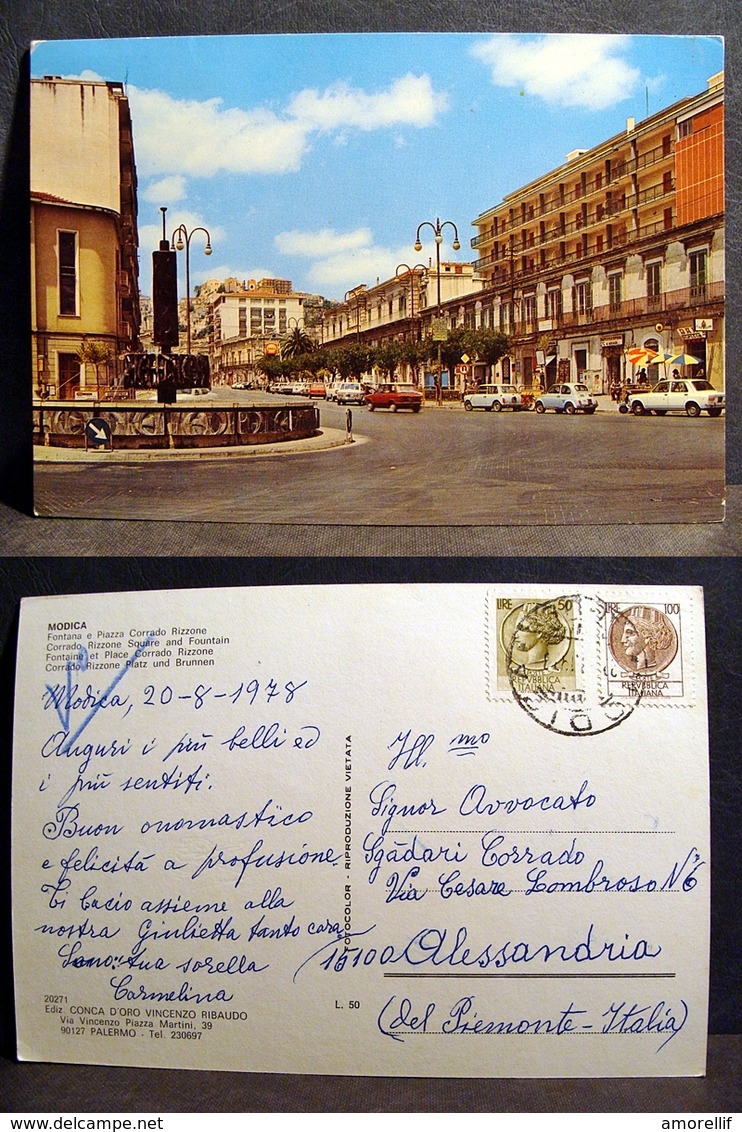 MODICA
Fontana e Piazza Corrado Rizzone
Corrado Rizzone Square and Fountain
Fontaine et Place Corrado Rizzone
Corrado Rizzone Platz und Brunnen
LIRE 50
REPVBBLICA
ITALIANA
LIRE 100
REPVBBLICA
ITALIANA
Modica, 20-8-1978
Auguri i più belli ed
i più sentiti.
Buon onomastico
e felicità a profusione.
Ti bacio assieme alla
nostra Giulietta tanto cara
Sono: tua sorella
Carmelina
20271
Ediz. CONCA D'ORO VINCENZO RIBAUDO
Via Vincenzo Piazza Martini, 39
90127 PALERMO - Tel. 230697
FOTOCOLOR - RIPRODUZIONE VIETATA
L. 50
Ill. mo
Signor Avvocato
Sgādari Corrado
Via Cesare Lombroso N° 6
15100 Alessandria
(del Piemonte - Italia)
delcampe.net
amorellif